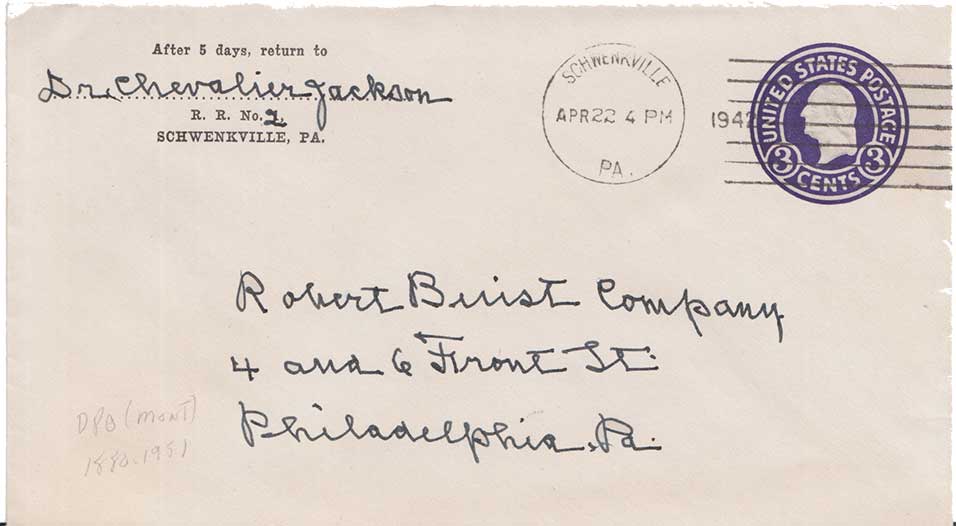 After 5 days, return to
Dr. Chevalier Jackson
R. R. No. 2
SCHWENKVILLE, PA.
SCHWENKVILLE
APR 22 4 PM
1942
PA.
UNITED STATES POSTAGE
3 CENTS 3
Robert Buist Company
4 and 6 Front St.
Philadelphia, Pa.
DPO (MONT)
1880-1981